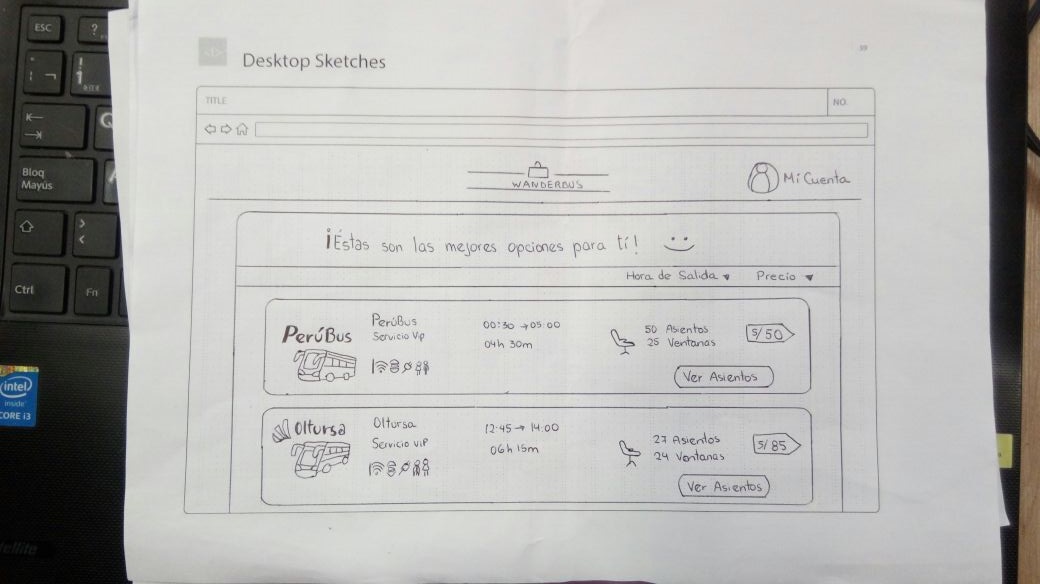 ESC
?
!
1
Q
Bloq
Mayús
>
<
Ctrl
Fn
intel
inside
CORE i3
Desktop Sketches
39
TITLE
NO.
WANDERBUS
Mi Cuenta
¡Éstas son las mejores opciones para tí!
Hora de Salida ▾ Precio ▾
PerúBus
PerúBus
Servicio Vip
00:30 → 05:00
04h 30m
50 Asientos
25 Ventanas
S/50
Ver Asientos
Oltursa
Oltursa
Servicio VIP
12:45 → 14:00
06h 15m
27 Asientos
24 Ventanas
S/85
Ver Asientos